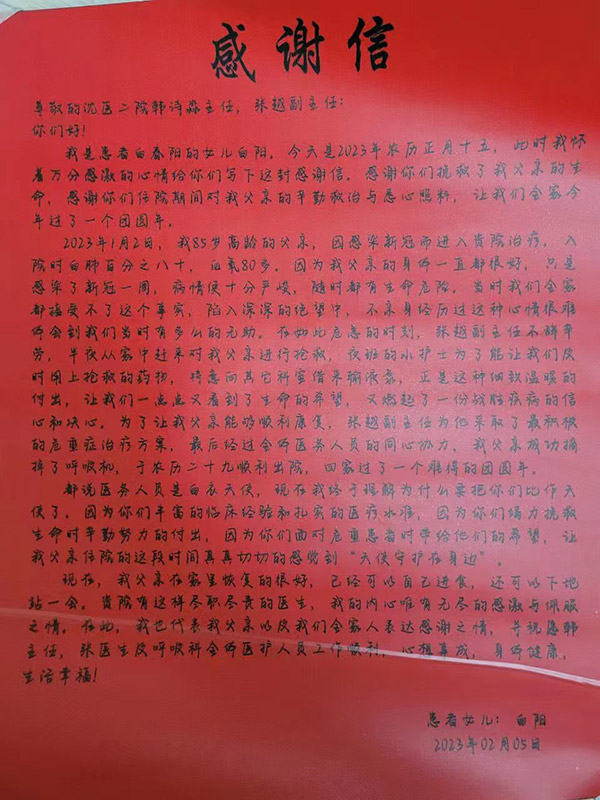 感谢信
尊敬的沈医二院韩诗淼主任，张越副主任：
你们好！
我是患者白春阳的女儿白阳。今天是2023年农历正月十五，此时我怀
着万分感激的心情给你们写下这封感谢信。感谢你们挽救了我父亲的生
命，感谢你们住院期间对我父亲的辛勤救治与悉心照料，让我们全家今
年过了一个团圆年。
2023年1月2日，我85岁高龄的父亲，因感染新冠而进入贵院治疗，入
院时白肺百分之八十，血氧80多。因为我父亲的身体一直都很好，只是
感染了新冠一周，病情便十分严峻，随时都有生命危险。当时我们全家
都接受不了这个事实，陷入深深的绝望中，不亲身经历过这种心情很难
体会到我们当时有多么的无助。在如此危急的时刻，张越副主任不辞辛
劳，半夜从家中赶来对我父亲进行抢救，夜班的小护士为了能让我们及
时用上抢救的药物，特意向其它科室借来输液泵，正是这种细致温暖的
付出，让我们一点点又看到了生命的希望，又燃起了一份战胜疾病的信
心和决心。为了让我父亲能够顺利康复，张越副主任为他采取了最积极
的危重症治疗方案，最后经过全体医务人员的同心协力，我父亲成功摘
掉了呼吸机，于农历二十九顺利出院，回家过了一个难得的团圆年。
都说医务人员是白衣天使，现在我终于理解为什么要把你们比作天
使了。因为你们丰富的临床经验和扎实的医疗水准，因为你们竭力挽救
生命时辛勤努力的付出，因为你们面对危重患者时带给他们的希望，让
我父亲住院的这段时间真真切切的感觉到“天使守护在身边”。
现在，我父亲在家里恢复的很好，已经可以自己进食，还可以下地
站一会。贵院有这样尽职尽责的医生，我的内心唯有无尽的感激与佩服
之情。在此，我也代表我父亲以及我们全家人表达感谢之情，并祝愿韩
主任，张医生及呼吸科全体医护人员工作顺利，心想事成，身体健康，
生活幸福！
患者女儿：白阳
2023年02月05日